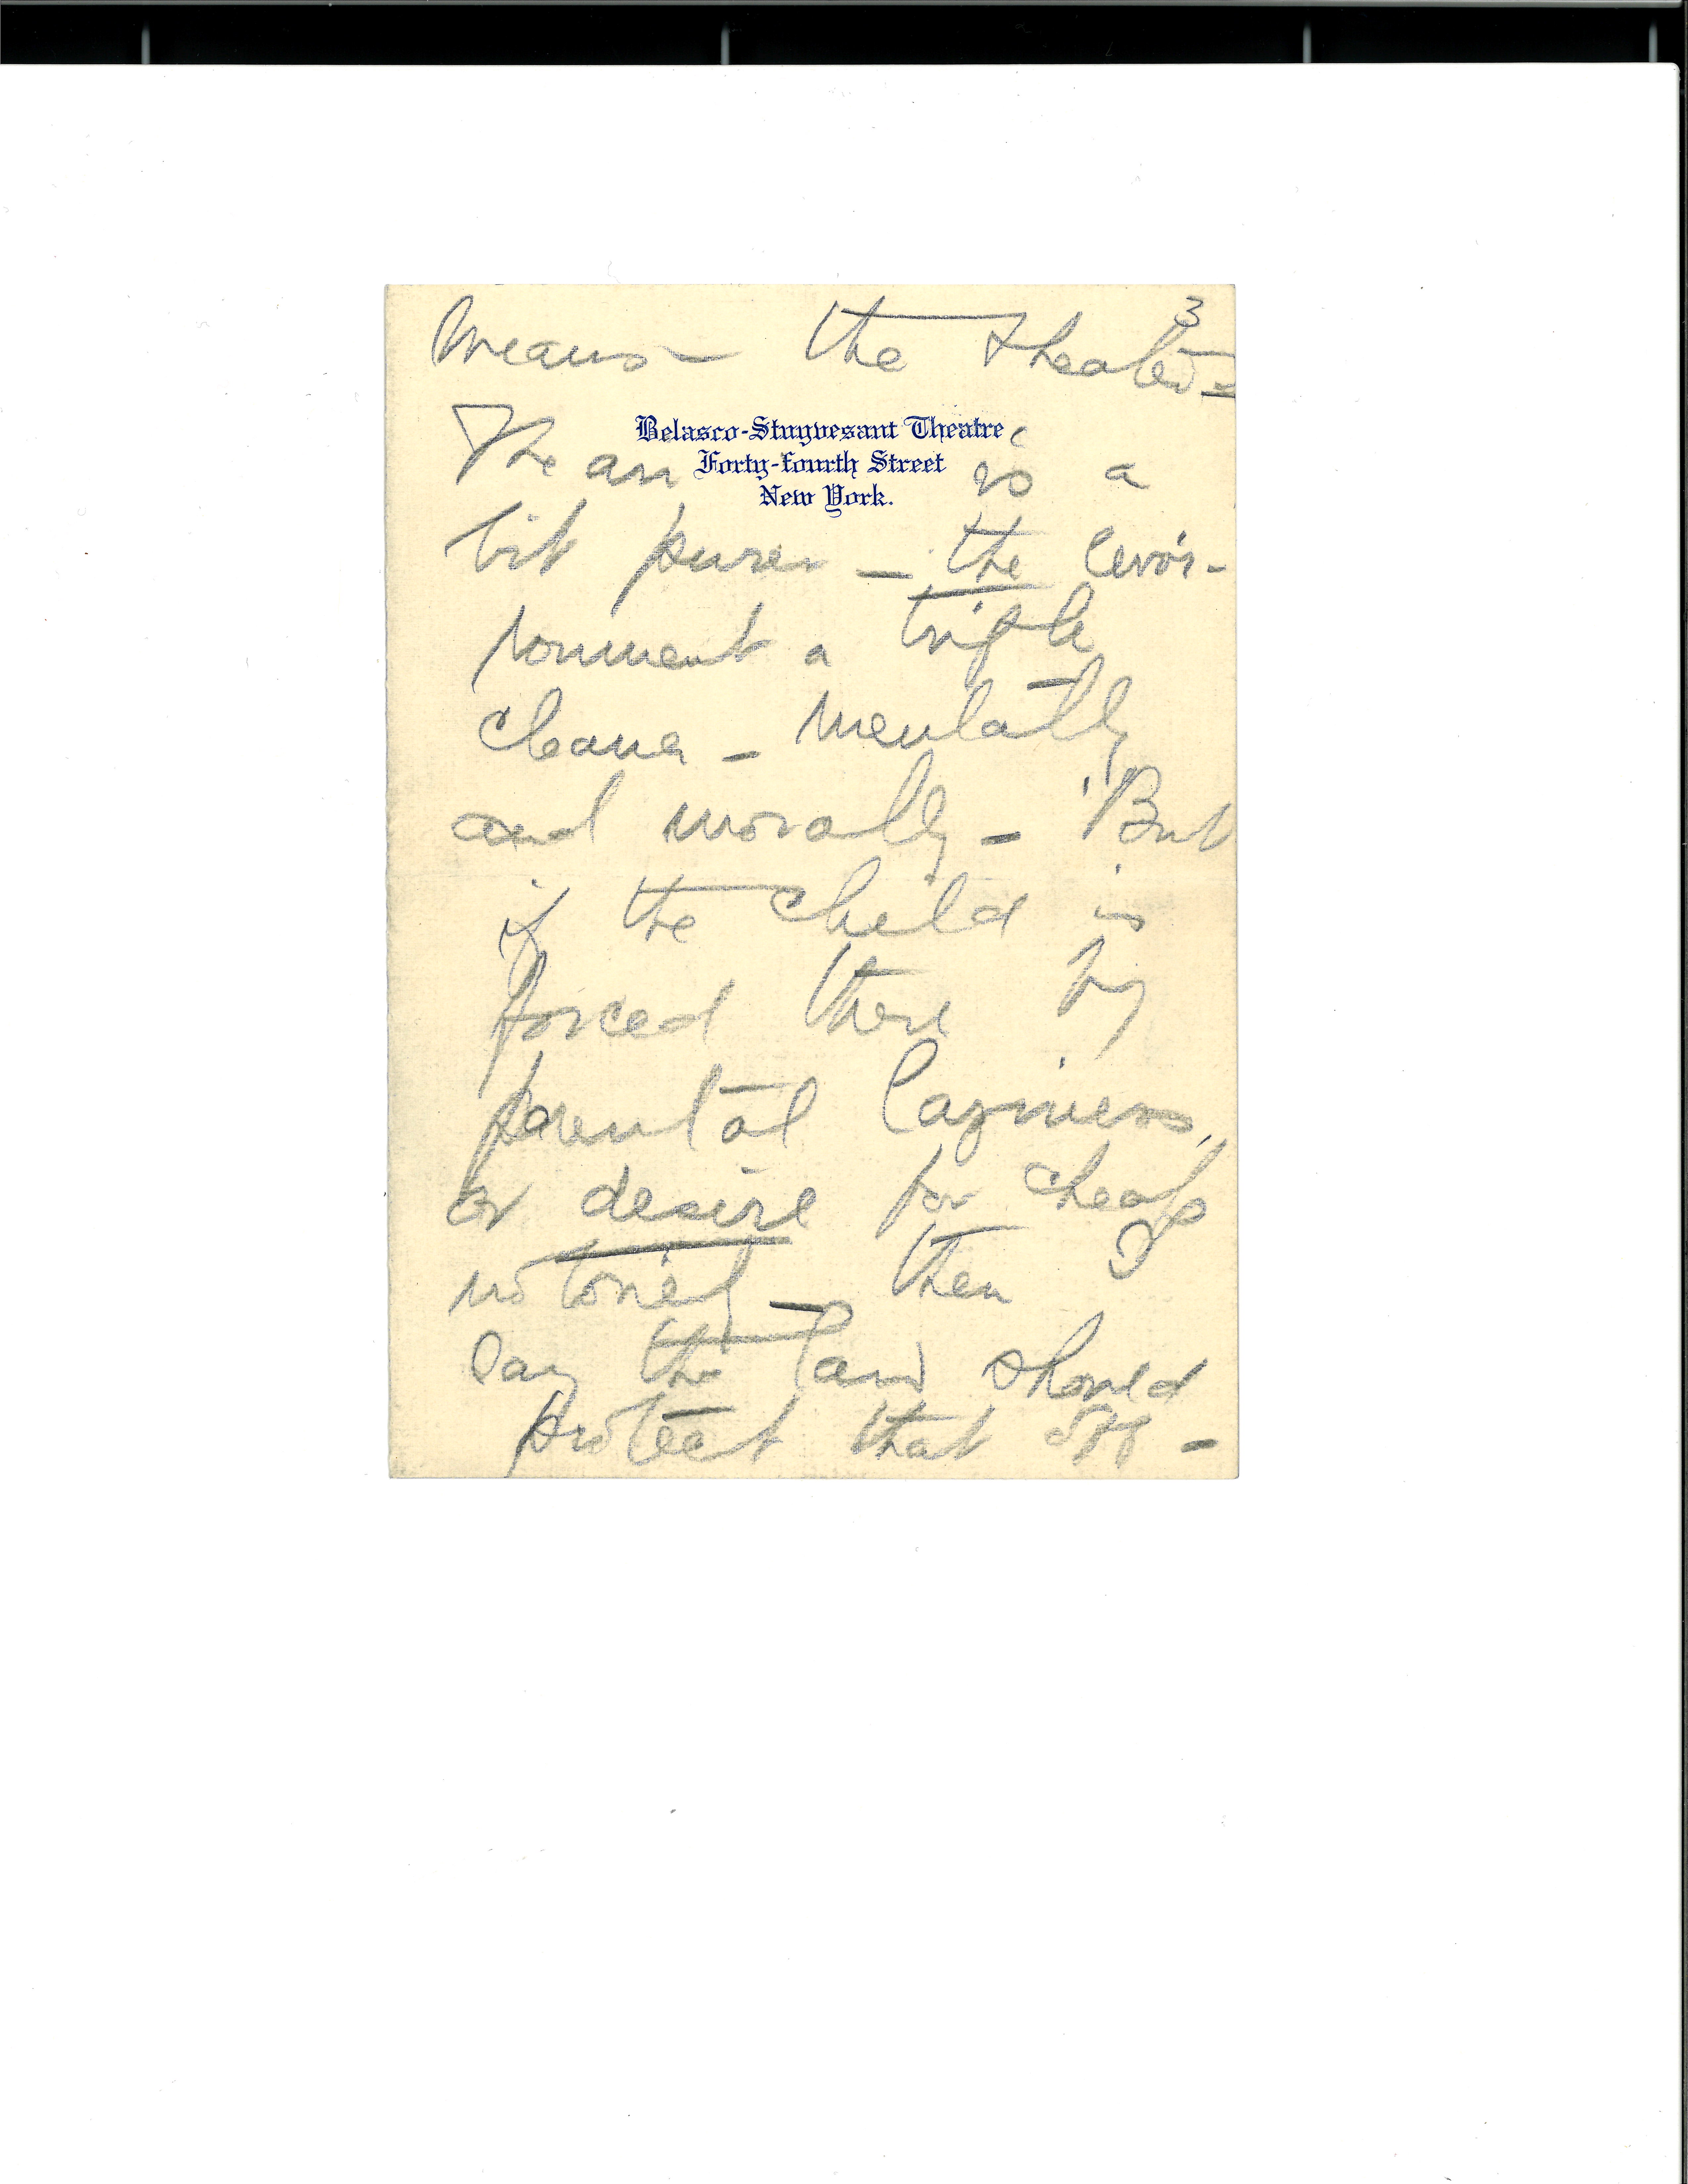 3
means — the theater —
Belasco-Stuyvesant Theatre
Forty-fourth Street
New York.
The air is a
bit purer — the envir-
ronment a trifle
cleaner — mentally
and morally — But
if the child is
forced there by
parental laziness,
or desire for cheap
notoriety — then I
say the law should
protect that off -